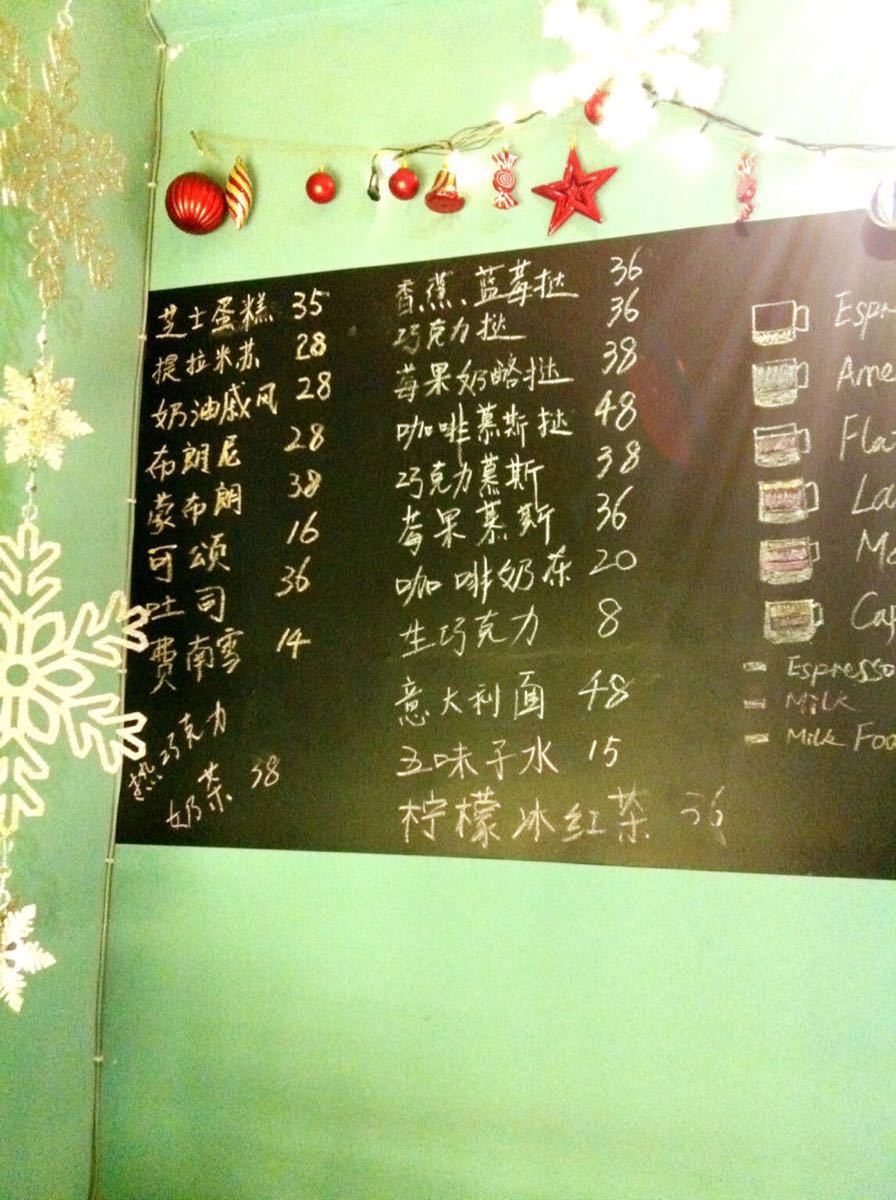 芝士蛋糕 35
提拉米苏 28
奶油戚风 28
布朗尼 28
蒙布朗 38
可颂 16
吐司 36
费南雪 14
热巧克力
奶茶 38
香蕉、蓝莓挞 36
巧克力挞 36
莓果奶酪挞 38
咖啡慕斯挞 48
巧克力慕斯 38
莓果慕斯 36
咖啡奶茶 20
生巧克力 8
意大利面 48
五味子水 15
柠檬冰红茶 36
Espr
Ame
Fla
La
Mo
Cap
Espresso
Milk
Milk Foo